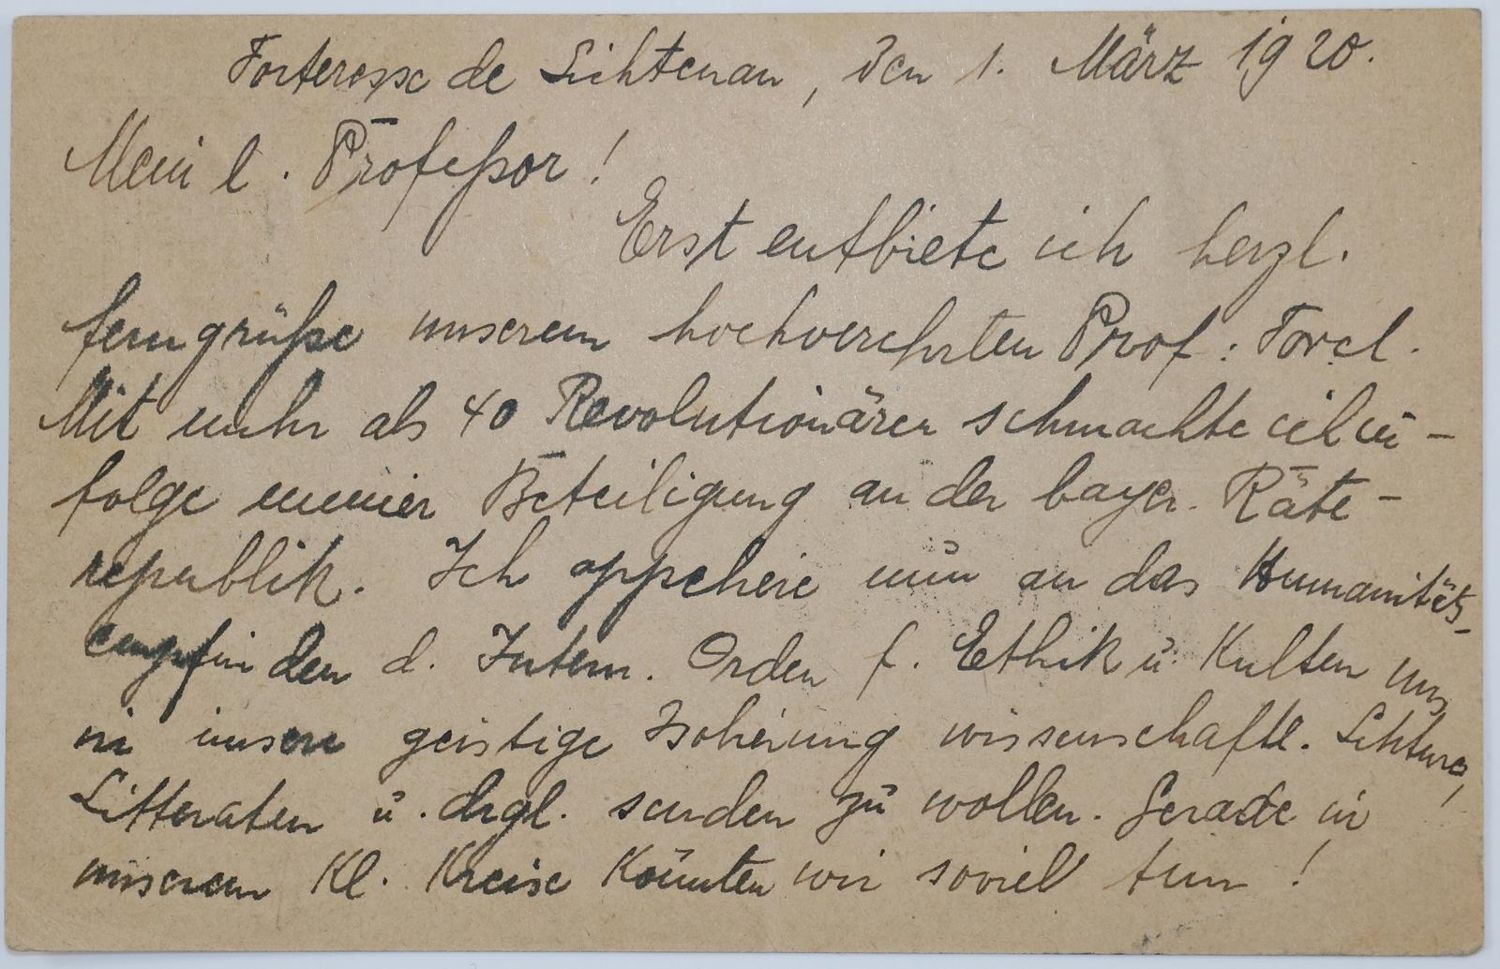 Forteresse de Lichtenau, den 1. März 1920.
Mein l. Professor!
Erst entbiete ich herzl.
Ferngrüße unserem hochverehrten Prof: Forel.
Mit mehr als 40 Revolutionären schmachte ich in-
folge meiner Beteiligung an der bayer. Räte-
republik. Ich appeliere nun an das Humanitäts-
empfinden d. Intern. Orden f. Ethik u. Kultur uns
in unsere geistige Isolierung wissenschaftl. Lektüre,
Litteratur u. drgl. senden zu wollen. Gerade in
unserem Kl. Kreise könnten wir soviel tun!